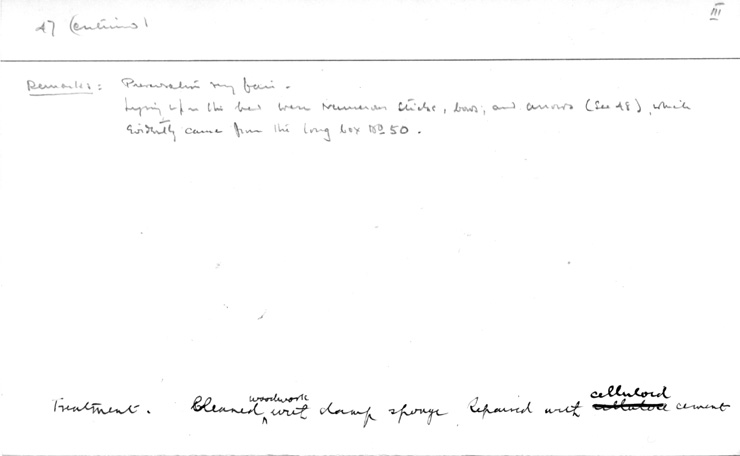 III
47 (continued)
Remarks: Preservation very fair.
Lying upon the bed were numerous sticks, bows, and arrows (see 48), which
evidently came from the long box No 50.
Treatment. Cleaned woodwork with damp sponge. Repaired with celluloid cement